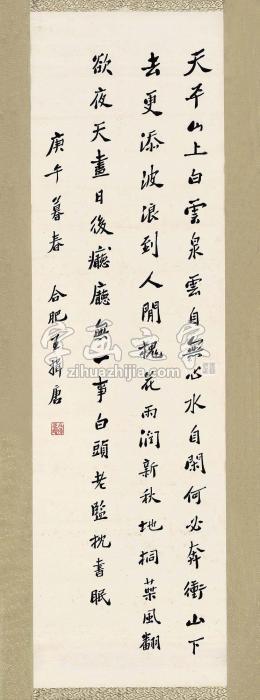 天平山上白雲泉雲自無心水自閑何必奔衝山下
去更添波浪到人間槐花雨潤新秋地桐葉風翻
欲夜天盡日後廳無一事白頭老監枕書眠
庚午暮春 合肥王揖唐
字画之家
zihuazhijia.com